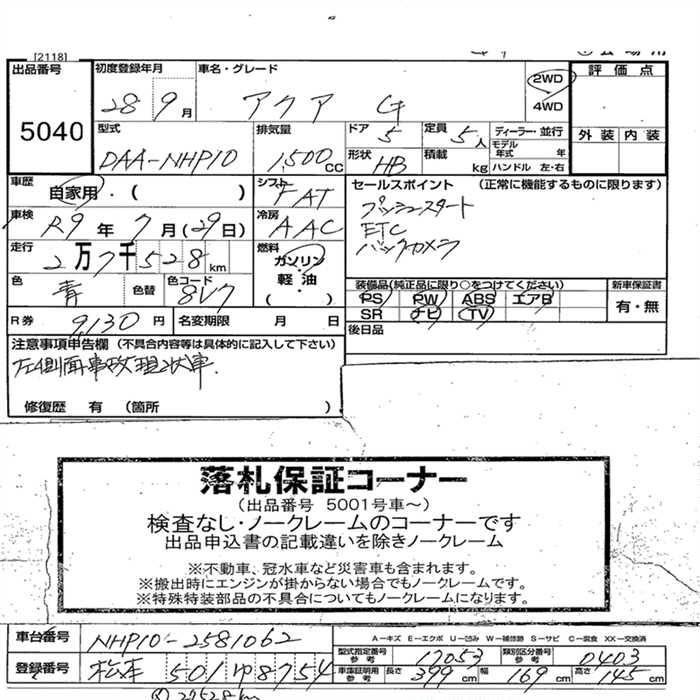 [2118]
出品番号 5040
初度登録年月 28年 9月
車名・グレード アクア G
2WD
4WD
評価点
外装 内装
型式 DAA-NHP10
排気量 1,500 CC
ドア 5
定員 5人
形状 HB
積載 kg
ディーラー・並行
モデル年式 年
ハンドル 左・右
車歴 自家用・( )
シフト FAT
車検 R9年 7月(29日)
冷房 AAC
走行 2万7千528km
燃料 ガソリン
軽油
( )
色 青 色替 色コード 8V7
セールスポイント (正常に機能するものに限ります)
プッシュスタート
ETC
バックカメラ
装備品(純正品に限り○をつけてください)
PS PW ABS エアB
SR ナビ TV
新車保証書
有・無
R券 9,130円 名変期限 月 日
後日品
注意事項申告欄 (不具合内容等は具体的に記入して下さい)
左側面事故現状車.
修復歴 有 (箇所 )
落札保証コーナー
(出品番号 5001号車〜)
検査なし・ノークレームのコーナーです
出品申込書の記載違いを除きノークレーム
※不動車、冠水車など災害車も含まれます。
※搬出時にエンジンが掛からない場合でもノークレームです。
※特殊特装部品の不具合についてもノークレームになります。
車台番号 NHP10-2581062
A-キズ E-エクボ U-凹み W-補修跡 S-サビ C-腐食 XX-交換済
型式指定番号 参考 17053 類別区分番号 参考 0403
登録番号 松本 501 ゆ 8754
車庫証明用 参考 長さ 399cm 幅 169cm 高さ 145cm
① 27528km